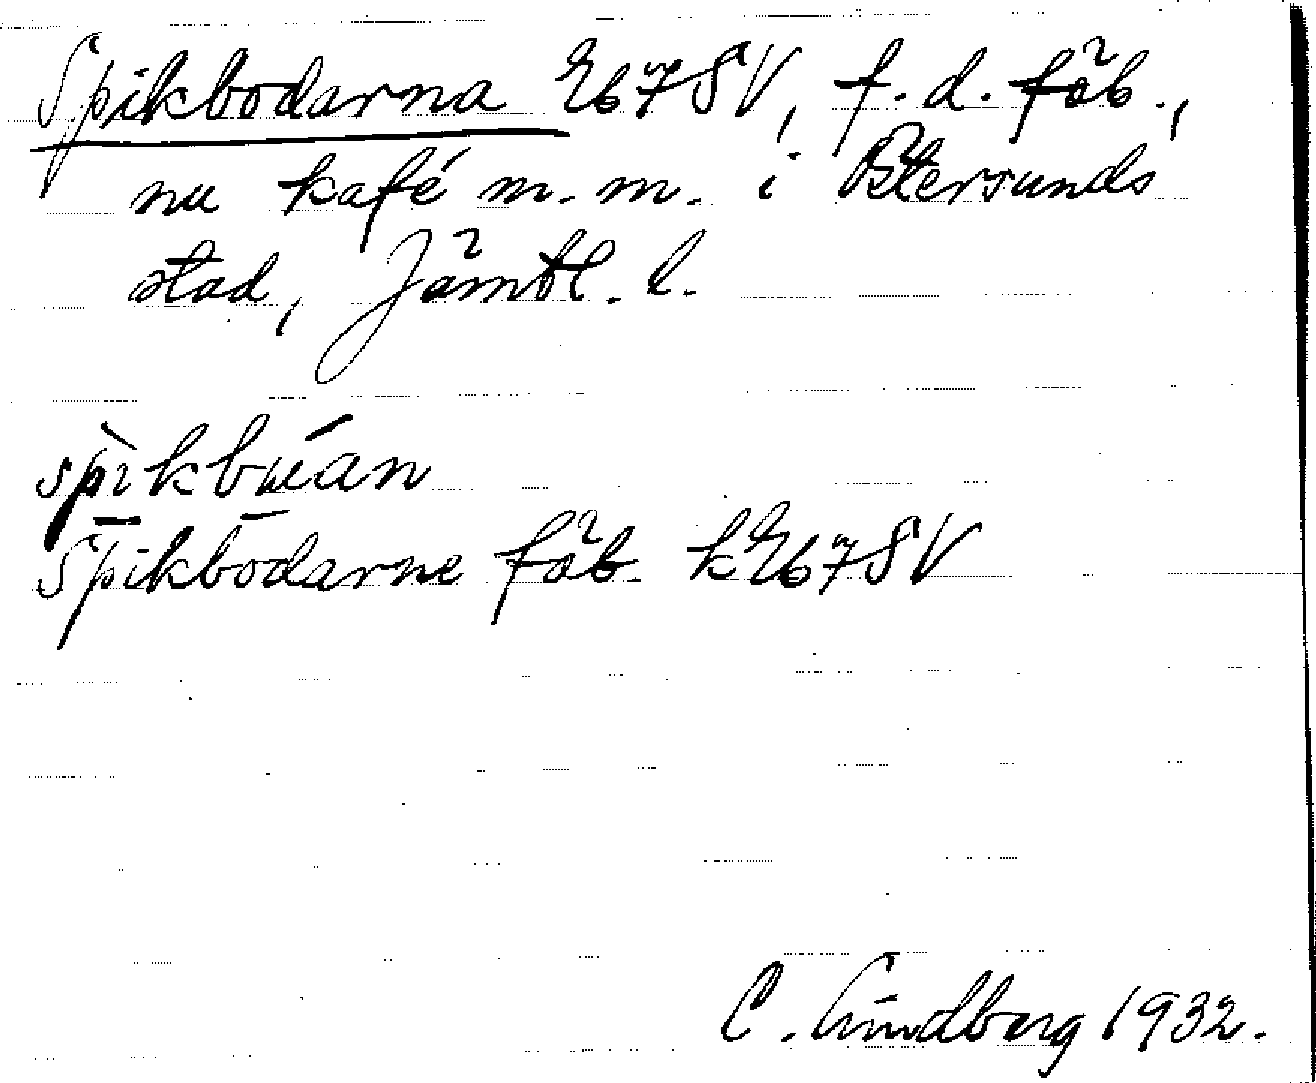 Spikbodarna Eb7SV, f.d. fäb.,
nu kafé m.m. i Östersunds
stad, Jämtl. l.
spìkbuán
Spikbodarne fäb. kEb7SV
C. Lindberg 1932.